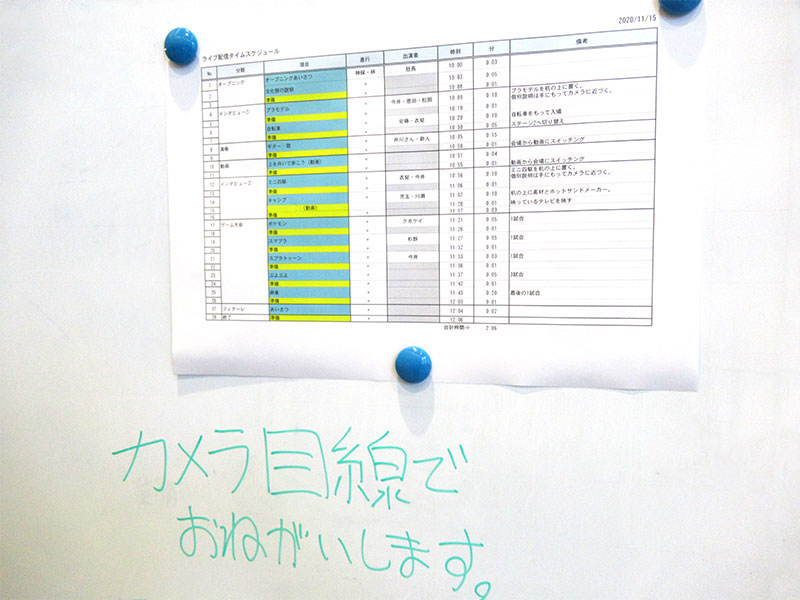 2020/11/15
ライブ配信タイムスケジュール
No 分類 項目 進行 出演者 時刻 分 備考
1 オープニング オープニングあいさつ 社長 10:00 0:03
2 文化祭の説明 〃 10:03 0:05
3 準備 〃 0:01
4 インタビュー① プラモデル 〃 10:09 0:10 プラモデルを机の上に置く。
個別説明は手にもってカメラに近づく。
準備 〃 10:19 0:01
自転車 〃 10:20 0:10 自転車をもって入場
準備 〃 10:30 0:05 ステージ2へ切り替え
ギター・歌 〃 10:35 0:15
9 準備 〃 10:50 0:01 会場から動画にスイッチング
10 動画 上を向いて歩こう(動画) 〃 10:51 0:04
11 準備 〃 10:55 0:01 動画から会場にスイッチング
12 インタビュー② ミニ四駆 〃 衣斐・今井 10:56 0:10 ミニ四駆を机の上に置く。
個別説明は手にもってカメラに近づく。
13 準備 〃 11:06 0:01
14 キャンプ 〃 児玉・川瀬 11:07 0:10 机の上に素材とホットサンドメーカー。
(動画) 映っているテレビを映す
16 準備 〃 11:17 0:03
17 ゲーム大会 ポケモン 〃 クボケイ 11:21 0:05 1試合
18 準備 〃 11:26 0:01
19 スマブラ 〃 杉野 11:27 0:05 1試合
20 準備 〃 11:32 0:01
21 スプラトゥーン 〃 今井 11:33 0:03 1試合
22 準備 〃 11:36 0:01
23 ぷよぷよ 〃 11:37 0:05 3試合
24 準備 〃 11:42 0:01
25 麻雀 〃 11:43 0:20 最後の1試合
26 準備 〃 12:03 0:01
27 フィナーレ あいさつ 〃 12:04 0:02
28 終了 準備 〃 12:06
合計時間⇒ 2:06
カメラ目線で
おねがいします。